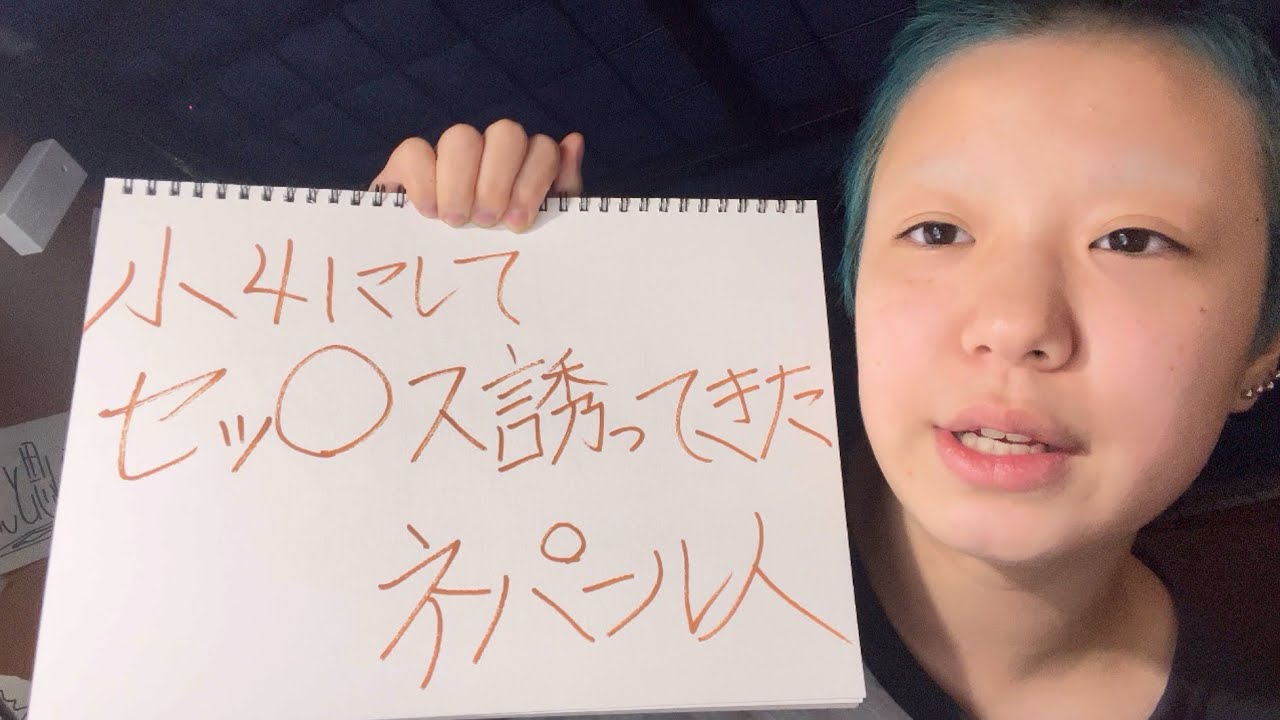 小4にして
セッ〇ス誘ってきた
ネパール人